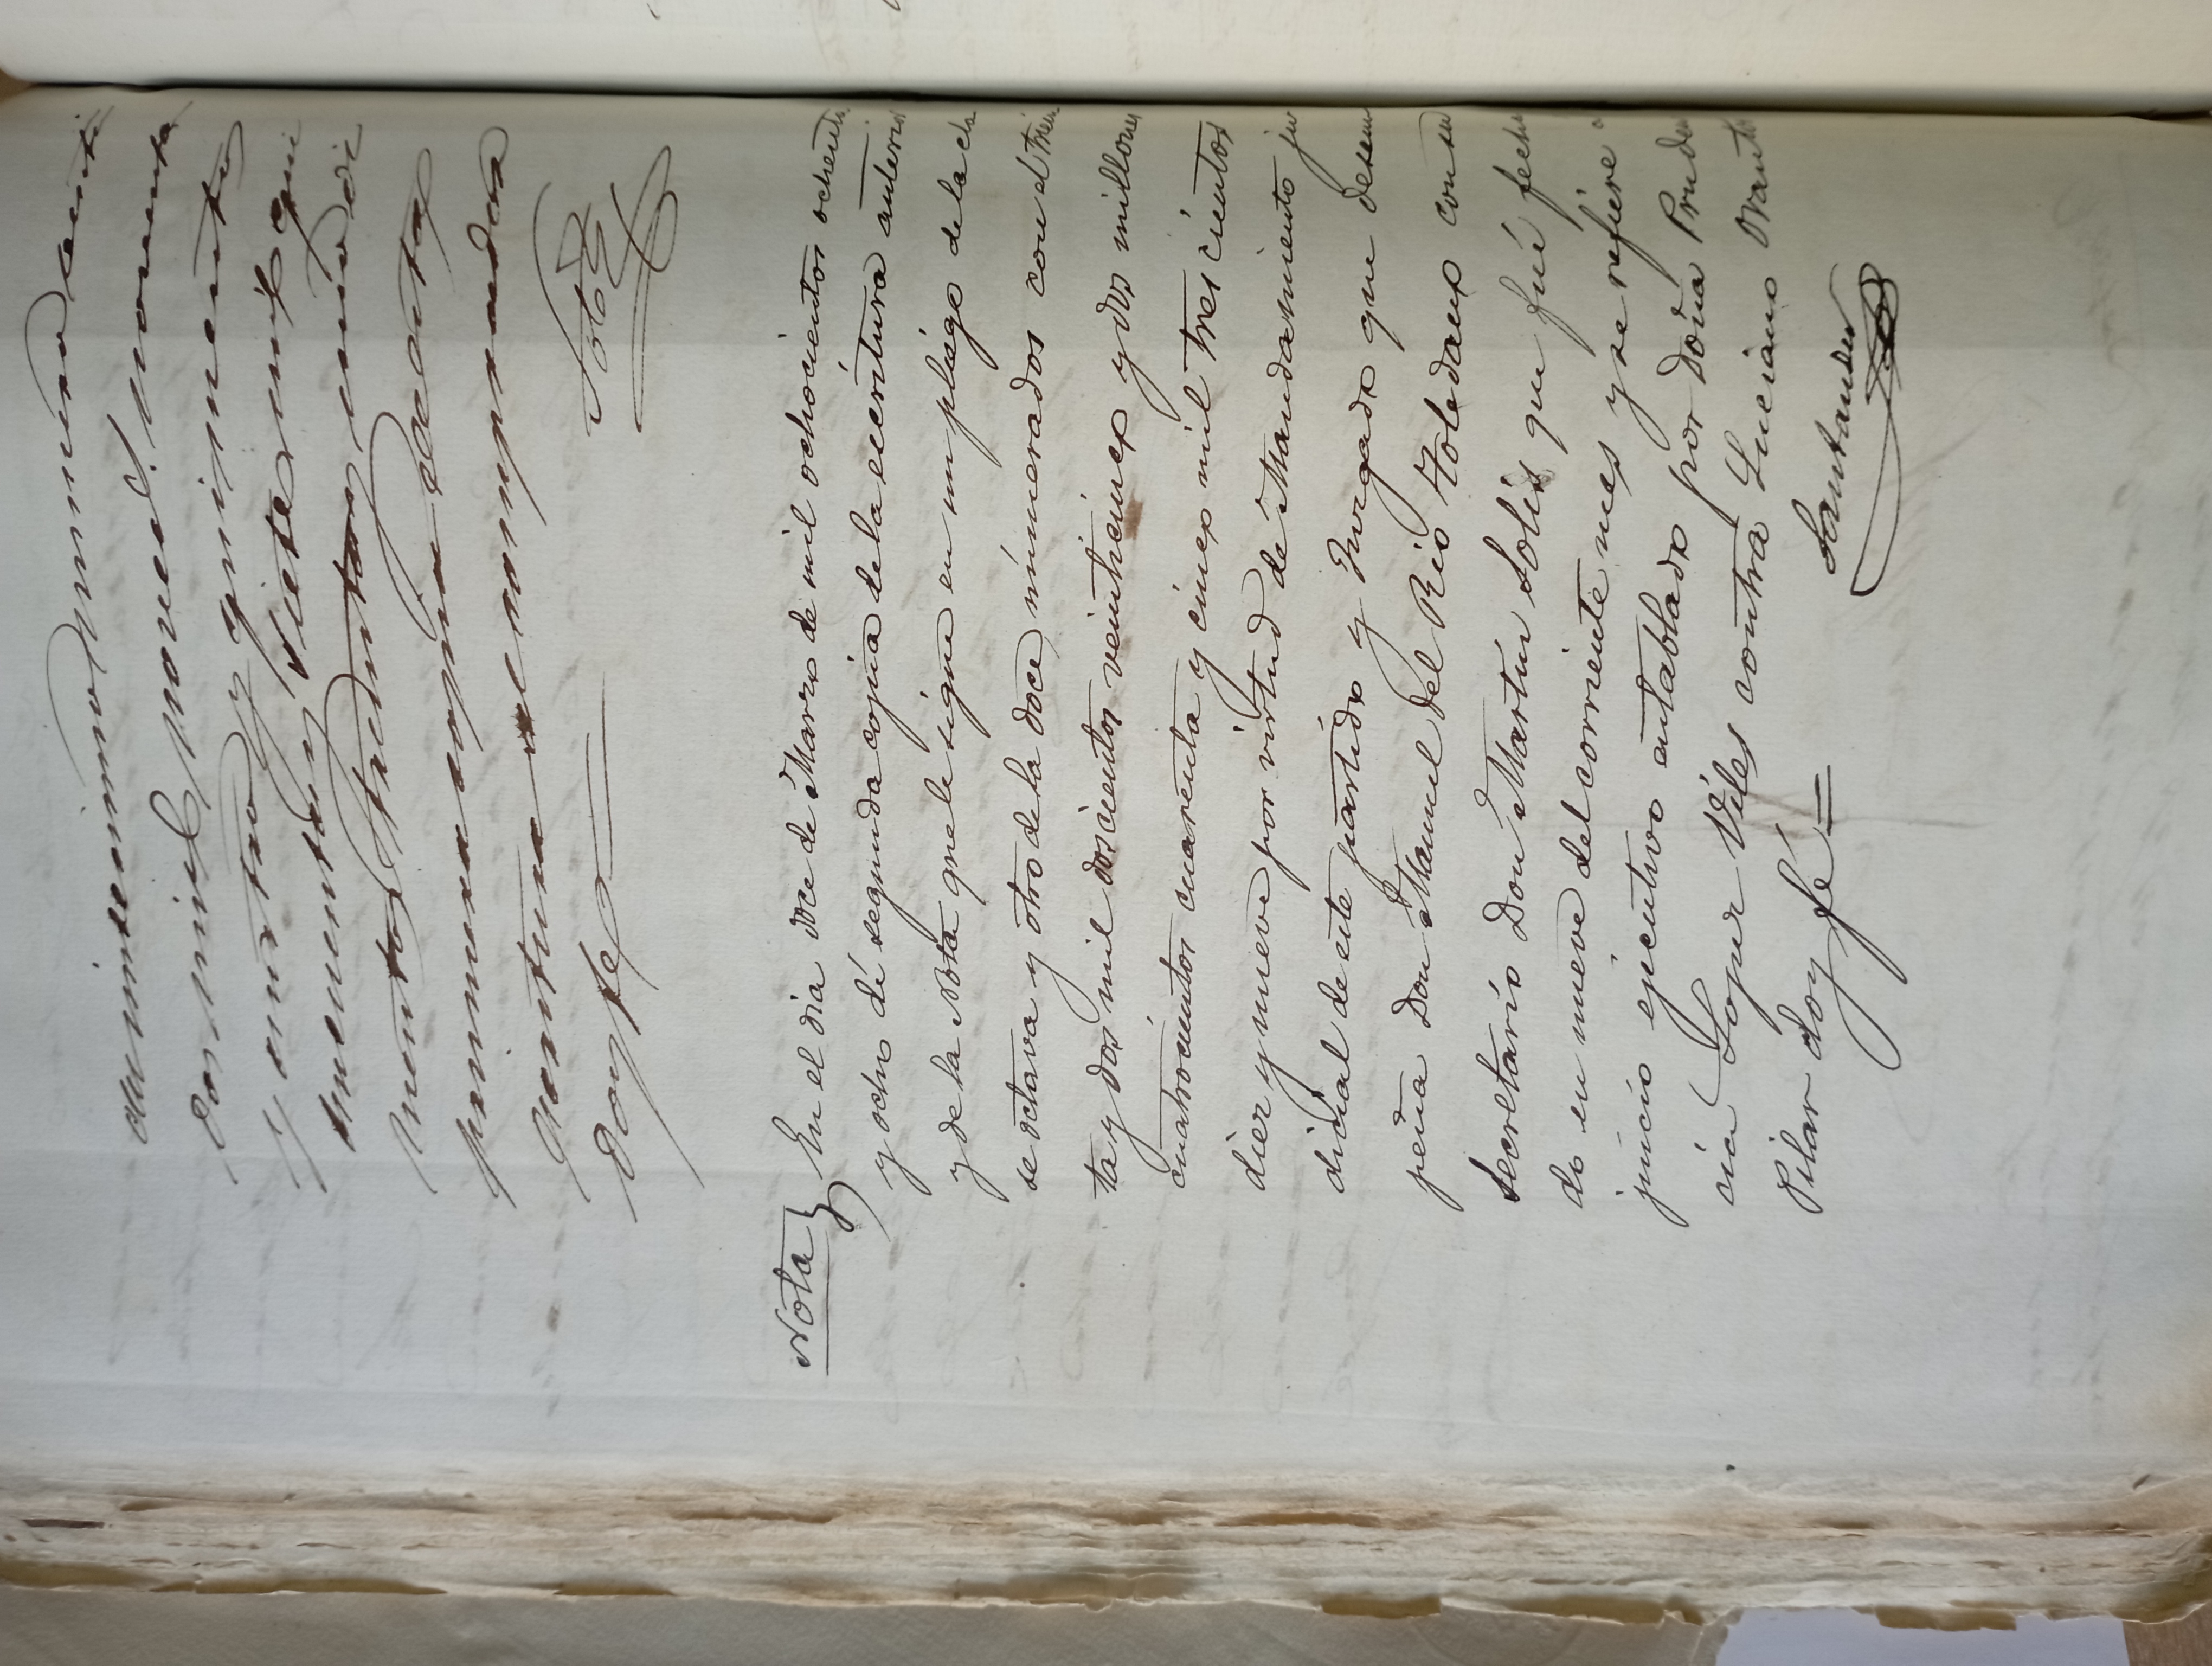 duodecimo numero veinti
dos mil noved. noventa
y cuatro y quinientos
cincuenta y siete mil qui
nientos treinta y uno di
primera copia de esta
escritura al comprador
Doy fe = Soto
Nota} En el dia doce de Marzo de mil ochocientos ochenta
y ocho dí segunda copia de la escritura anterior
y de la Nota que le sigue en un pliego de la cla
se octava y otro de la doce, númerados con el trein
ta y dos mil doscientos veinticinco y dos millones
cuatrocientos cuarenta y cinco mil trescientos
diez y nueve por virtud de Mandamiento ju
dicial de este partido y Juzgado que desem
peña Don Manuel del Rio Toledano con su
Secretario Don Martin Solis que fué fecha
do en nueve del corriente mes y se refiere a
juicio ejecutivo entablado por Doña Pruden
cia Lopez Viles contra Luciano Orantos
Pilar doy fé = Santander